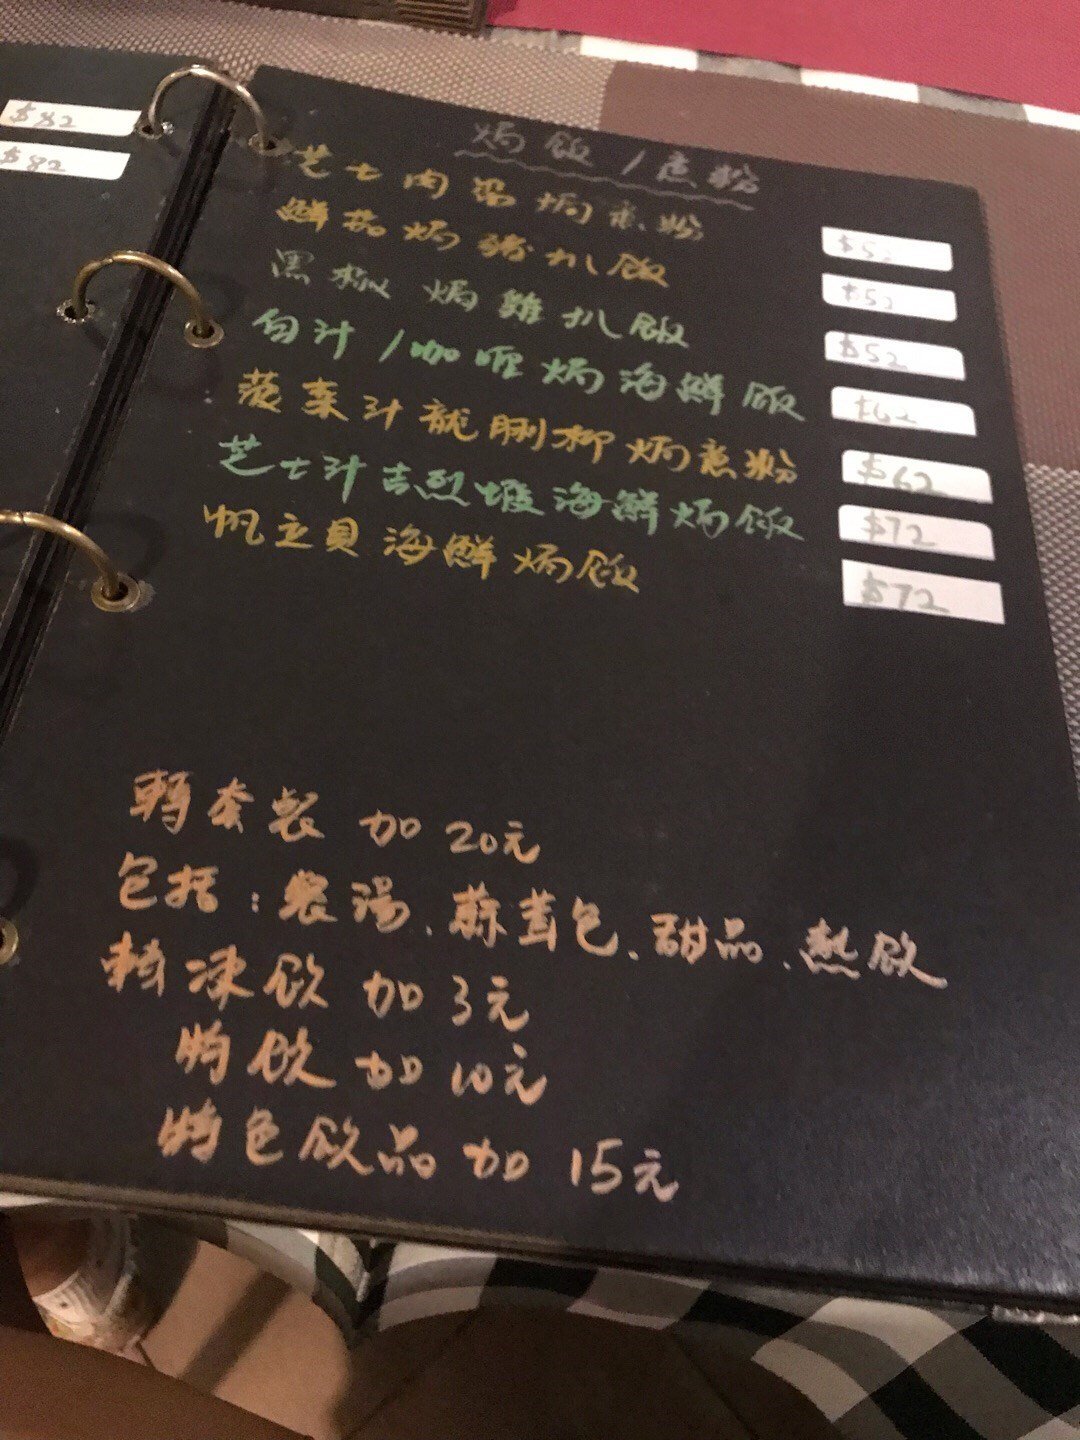 $82
$82
焗飯/意粉
芝士肉醬焗意粉 $52
鮮茄焗豬扒飯 $52
黑椒焗雞扒飯 $52
白汁/咖喱焗海鮮飯 $62
菠菜汁龍脷柳焗意粉 $62
芝士汁吉烈蝦海鮮焗飯 $72
帆立貝海鮮焗飯 $72
轉套餐 加 20元
包括:餐湯、蒜茸包、甜品、熱飲
轉凍飲 加 3元
特飲 加 10元
特色飲品 加 15元